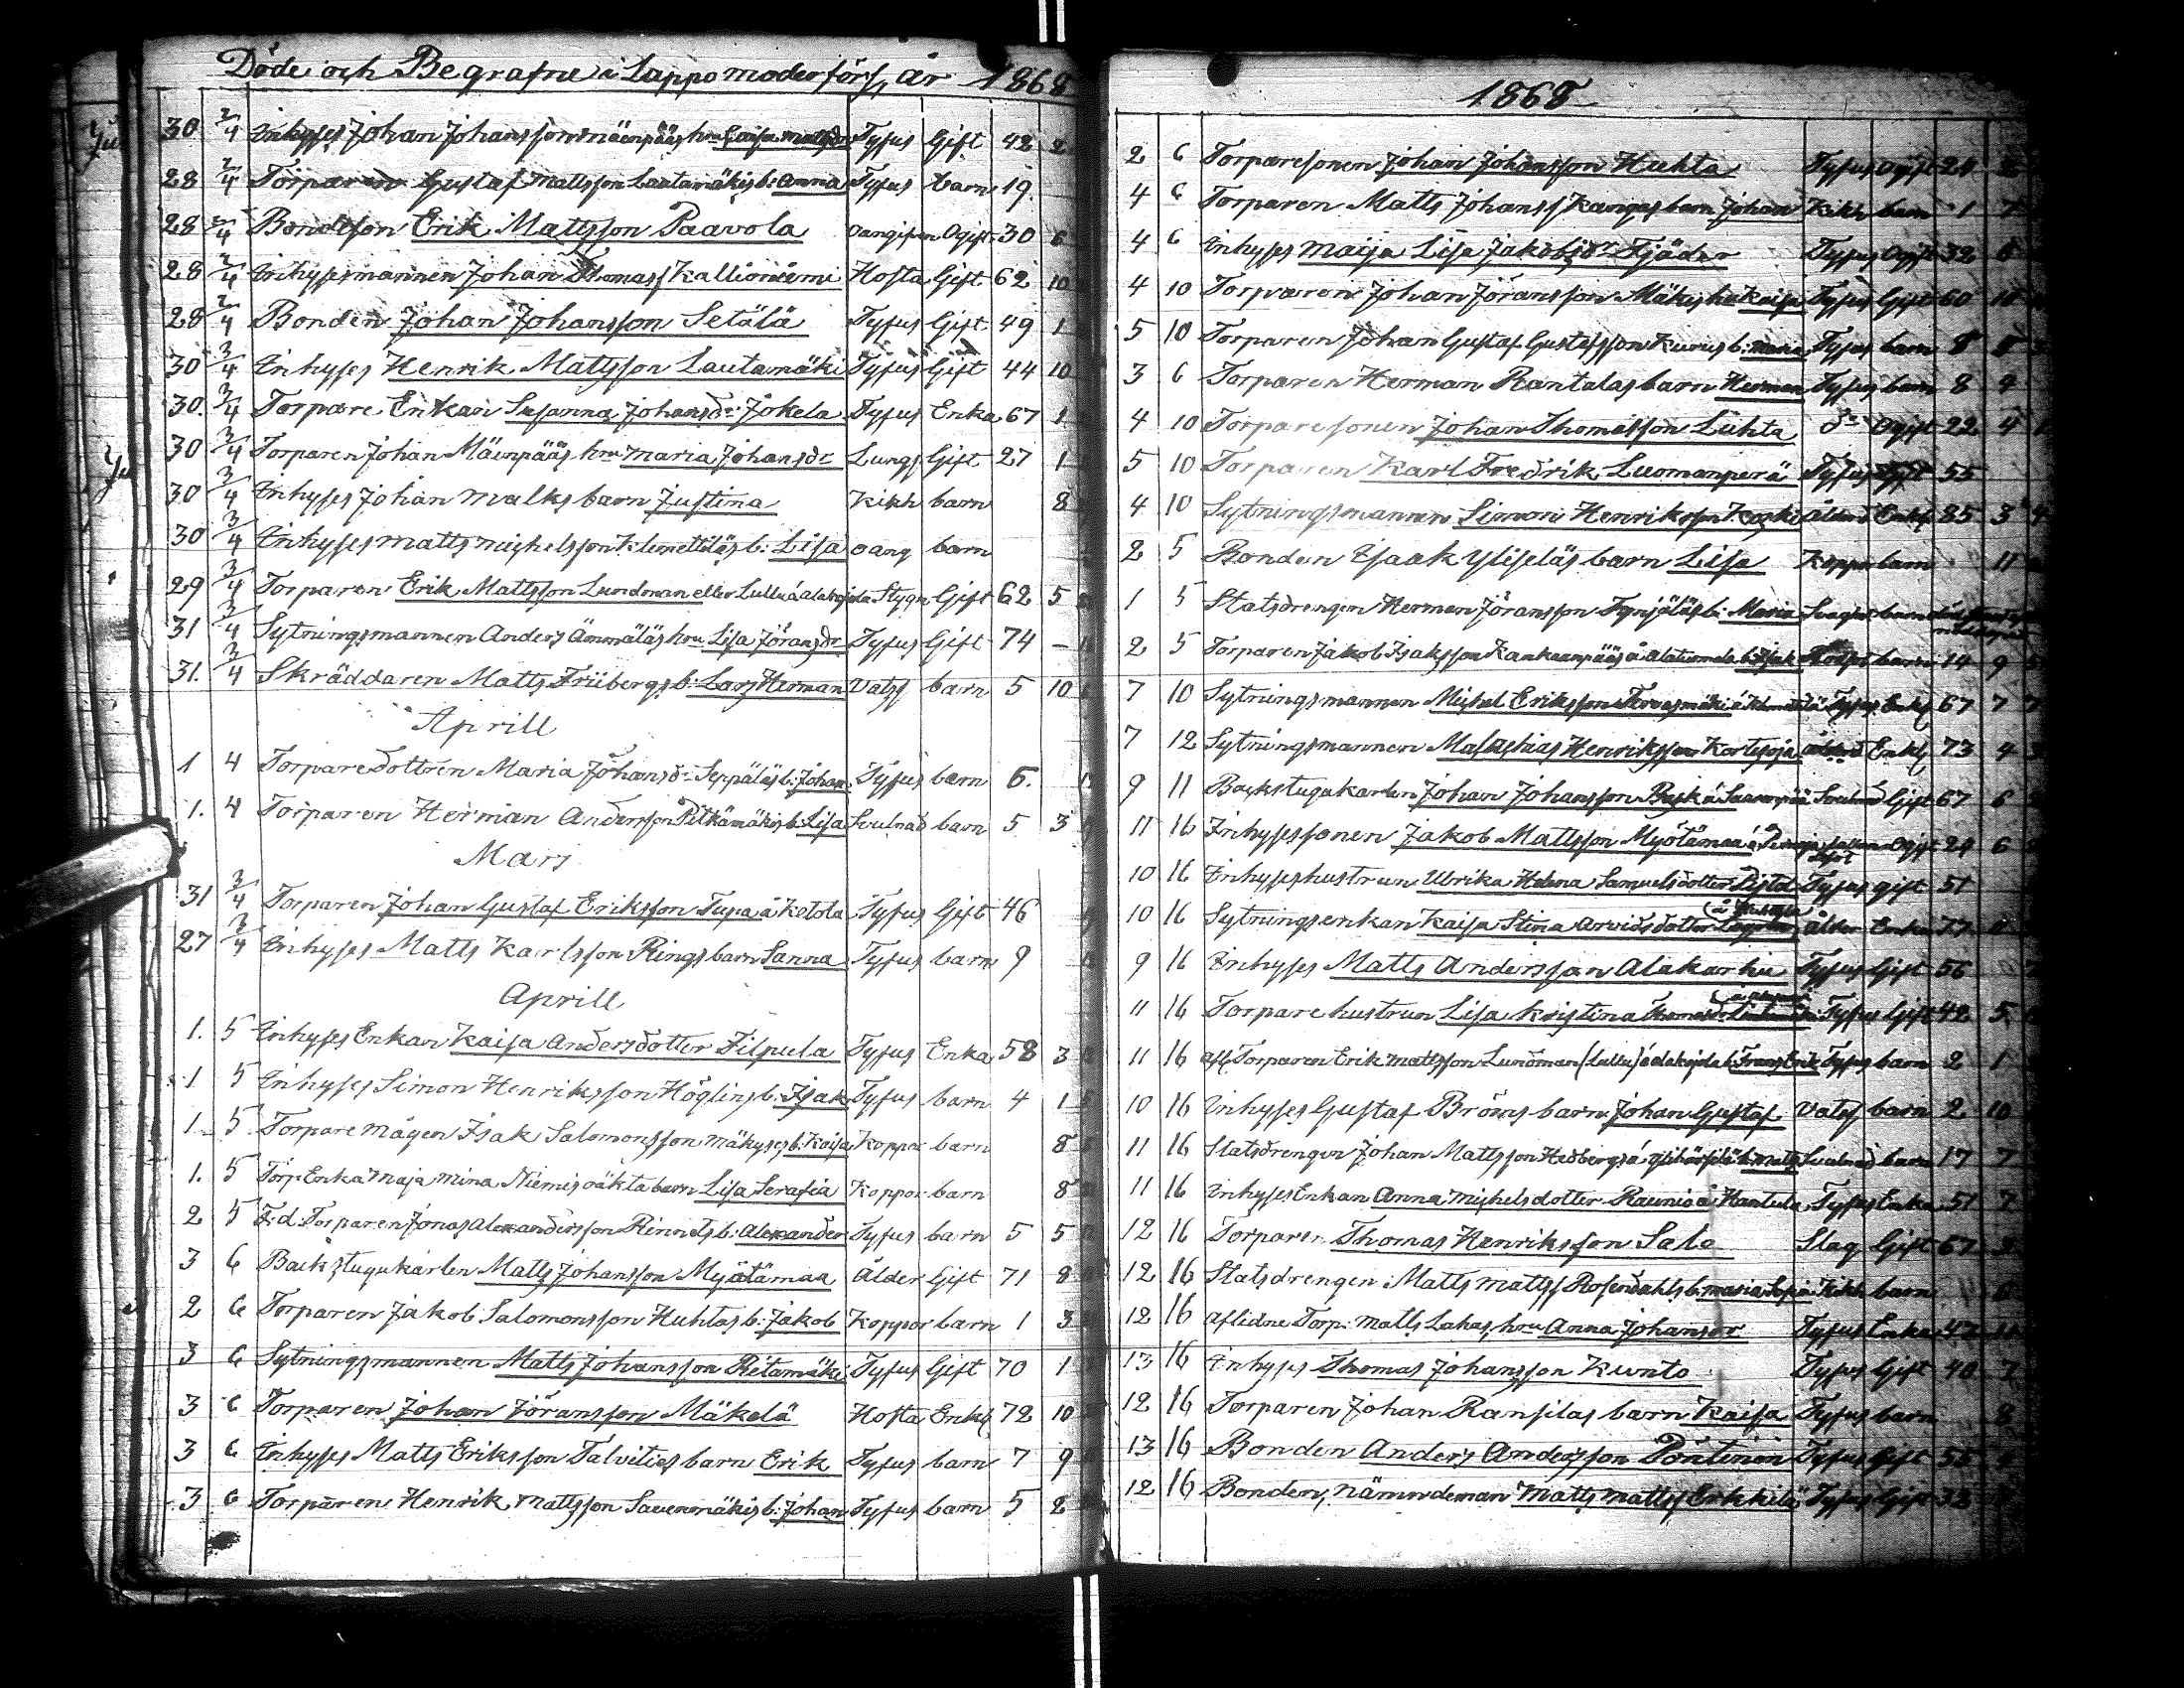 Döde och Begrafne i Lappo moderförs. år 1868
30 2/4 Inhyses Johan Johansson mäenpääs hru Caisa Mattsdr Tyfus Gift 42 2
28 2/4 Torparen Gustaf Mattsson Lautamäkis b: Anna Tyfus barn 19
28 2/4 Bondeson Erik Mattsson Paavola oangifven Ogift 30 6
28 2/4 Inhysesmannen Johan Thomass Kallioniemi Hosta Gift 62 10
28 2/4 Bonden Johan Johansson Setälä Tyfus Gift 49 1
30 3/4 Inhyses Henrik Mattsson Lautamäki Tyfus Gift 44 10
30. 3/4 Torpare Enkan Susanna Johansdr Jokela Tyfus Enka 67 1
30 3/4 Torparen Johan Mäenpääs hru Maria Johansdr Lungs Gift 27 1
30 3/4 Inhyses Johan malks barn Justina Kikh barn 8
30 3/4 Inhyses Matts Michelsson Klemettiläs b: Lisa oang barn
29 3/4 Torparen Erik Mattsson Lundman eller Lullu á alakojola Stygn Gift 62 5
31 3/4 Sytningsmannen Anders Ämmäläs hru Lisa Jöransdr Tyfus Gift 74 -
31. 3/4 Skräddaren Matts Fribergs b: Lars Herman Vatss barn 5 10
Aprill
1 4 Torparedottren Maria Johansdr Seppäläs b: Johan Tyfus barn 6.
1. 4 Torparen Herman Andersson Pitkämäkis b: Lisa Svulnad barn 5 3
Mars
31 3/4 Torparen Johan Gustaf Eriksson Tupa á Ketola Tyfus Gift 46
27 3/4 Inhyses Matts Karlsson Rings barn Sanna Tyfus barn 9
Aprill
1. 5 Inhyses Enkan Kaisa Andersdotter Filpula Tyfus Enka 58 3
1 5 Inhyses Simon Henriksson Höglins b: Isak Tyfus barn 4 1
1 5 Torpare mågen Isak Salomonsson mäkyses b: Kaisa Koppor barn 8
1. 5 Torp: Enka Maja Mina Niemis oäkta barn Lisa Serafia Koppor barn 8
2 5 F.d. Torparen Jonas Alexandersson Rinnets b: Alexander Tyfus barn 5 5
3 6 Backstugukarlen Matts Johansson Myötämaa Ålder Gift 71 8
2 6 Torparen Jakob Salomonsson Huhtas b: Jakob Koppor barn 1 3
3 6 Sytningsmannen Matts Johansson Ritamäki Tyfus Gift 70 1
3 6 Torparen Johan Jöransson Mäkelä Hosta Enkl 72 10
3 6 Inhyses Matts Eriksson Talvities barn Erik Tyfus barn 7 9
3 6 Torparen Henrik Mattsson Sauenmäkis b: Johan Tyfus barn 5 2
1868
2 6 Torparesonen Johan Johansson Huhta Tyfus Ogift 24
4 6 Torparen Matts Johanss Kangas barn Johan Kikh barn 1 7
4 6 Inhyses Maija Lisa Jakobsdr Fjäder Tyfus Ogift 32 6
4 10 Torparen Johan Jöransson Mäkis hu Kaisa Tyfus Gift 60 10
5 10 Torparen Johan Gustaf Gustafsson Kurus b: Maria Tyfus barn 8 8
3 6 Torparen Herman Rantalas barn Herman Tyfus barn 8 4
4 10 Torparesonen Johan Thomasson Luhta do Ogift 22 4
5 10 Torparen Karl Fredrik Luomanperä Tyfus Gift 55
4 10 Sytningsmannen Simon Henriksson Koski Ålder Enkl 85 3
2 5 Bonden Isaak Yliseläs barn Lisa Koppor barn 11
1 5 Statsdrengen Herman Jöransson Tynjäläs b: Maria barn
2 5 Torparen Jakob Isaksson Kankaanpääs á Alaluoma b: Isak barn 14 9
7 10 Sytningsmannen Michel Eriksson Tyfus Enkl 67 7
7 12 Sytningsmannen Malachias Henriksson Kortesoja ålder Enkl 73 4
9 11 Backstugakarlen Johan Johansson Svulnad Gift 67 6
11 16 Inhysessonen Jakob Mattsson Myötämaa Ogift 24 6
10 16 Inhyseshustrun Ulrika Helena Samuelsdotter Pistol Tyfus gift 51
10 16 Sytningsenkan Kaisa Stina Arvidsdotter ålder Enka 77
9 16 Inhyses Matts Andersson Alakarhu Tyfus Gift 56
11 16 Torparehustrun Lisa Kristina Tyfus Gift 42 5
11 16 afl. Torparen Erik Mattsson Lundman (Lullu) á alakojola b: Frans Erik Tyfus barn 2 1
10 16 Inhyses Gustaf Bröms barn Johan Gustaf Vatss barn 2 10
11 16 Statsdrengen Johan Mattsson Hedbergs b: Matts Svulnad barn 17 7
11 16 Inhyses Enkan Anna Michelsdotter Raunio á Hantula Tyfus Enka 51 7
12 16 Torparen Thomas Henriksson Salo Slag Gift 67 3
12 16 Statsdrengen Matts Mattss Rosendahls b: Maria Sofia Kikh barn 6
12 16 Aflidne Torp: Matts Lahas hru Anna Johansdr Tyfus Enka 47 11
13 16 Inhyses Thomas Johansson Kunto Tyfus Gift 40 7
12 16 Torparen Johan Ransilas barn Kaisa Tyfus barn 8
13 16 Bonden Anders Andersson Pöntinen Tyfus Gift 55
12 16 Bonden, Nämndeman Matts Mattss Erkkilä Tyfus Gift 33